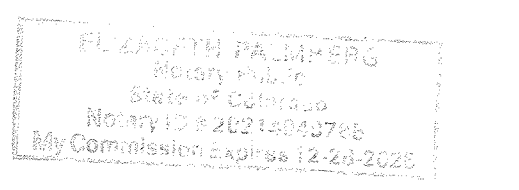 ELIZABETH PALMBERG
Notary Public
State of Colorado
Notary ID #
My Commission Expires 12-20-2025